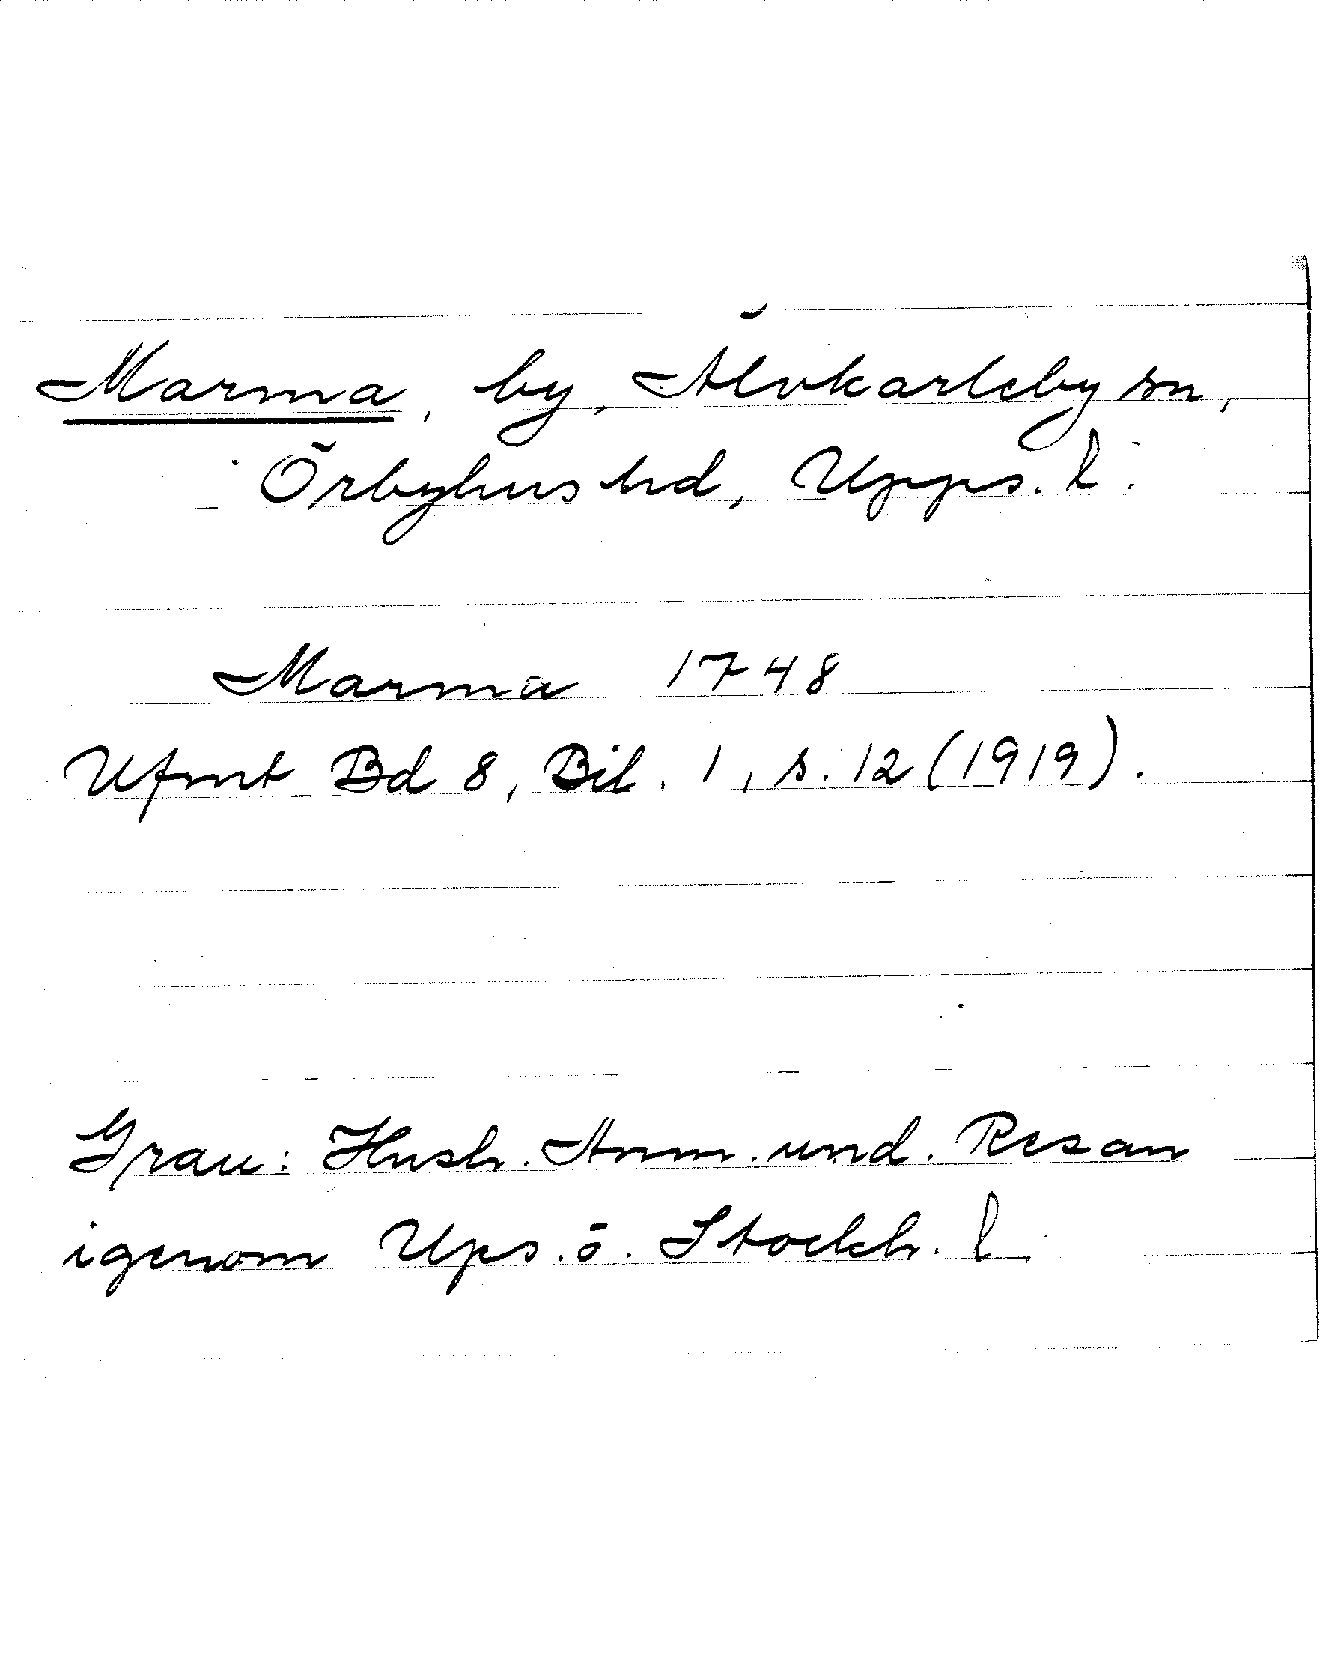 Marma, by, Älvkarleby sn,
Örbyhus hd, Upps. l.
Marma 1748
Ufmt Bd 8, Bil. 1, s. 12 (1919).
Grau: Hush. Anm. und. Resan
igenom Ups. ö. Stockh. l